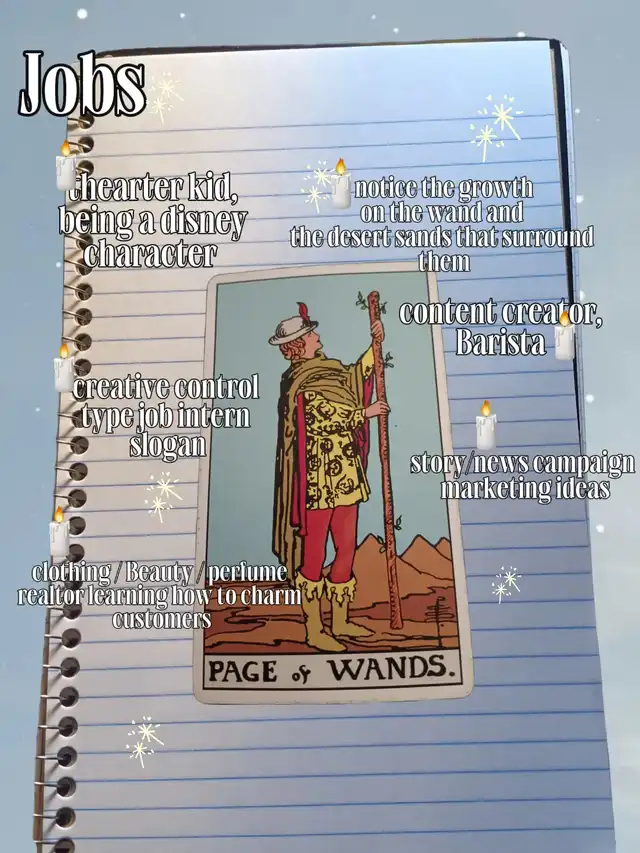 Jobs
thearter kid,
being a disney
character
notice the growth
on the wand and
the desert sands that surround
them
content creator,
Barista
creative control
type job intern
slogan
story/news campaign
marketing ideas
clothing / Beauty / perfume
realtor learning how to charm
customers
PAGE of WANDS.